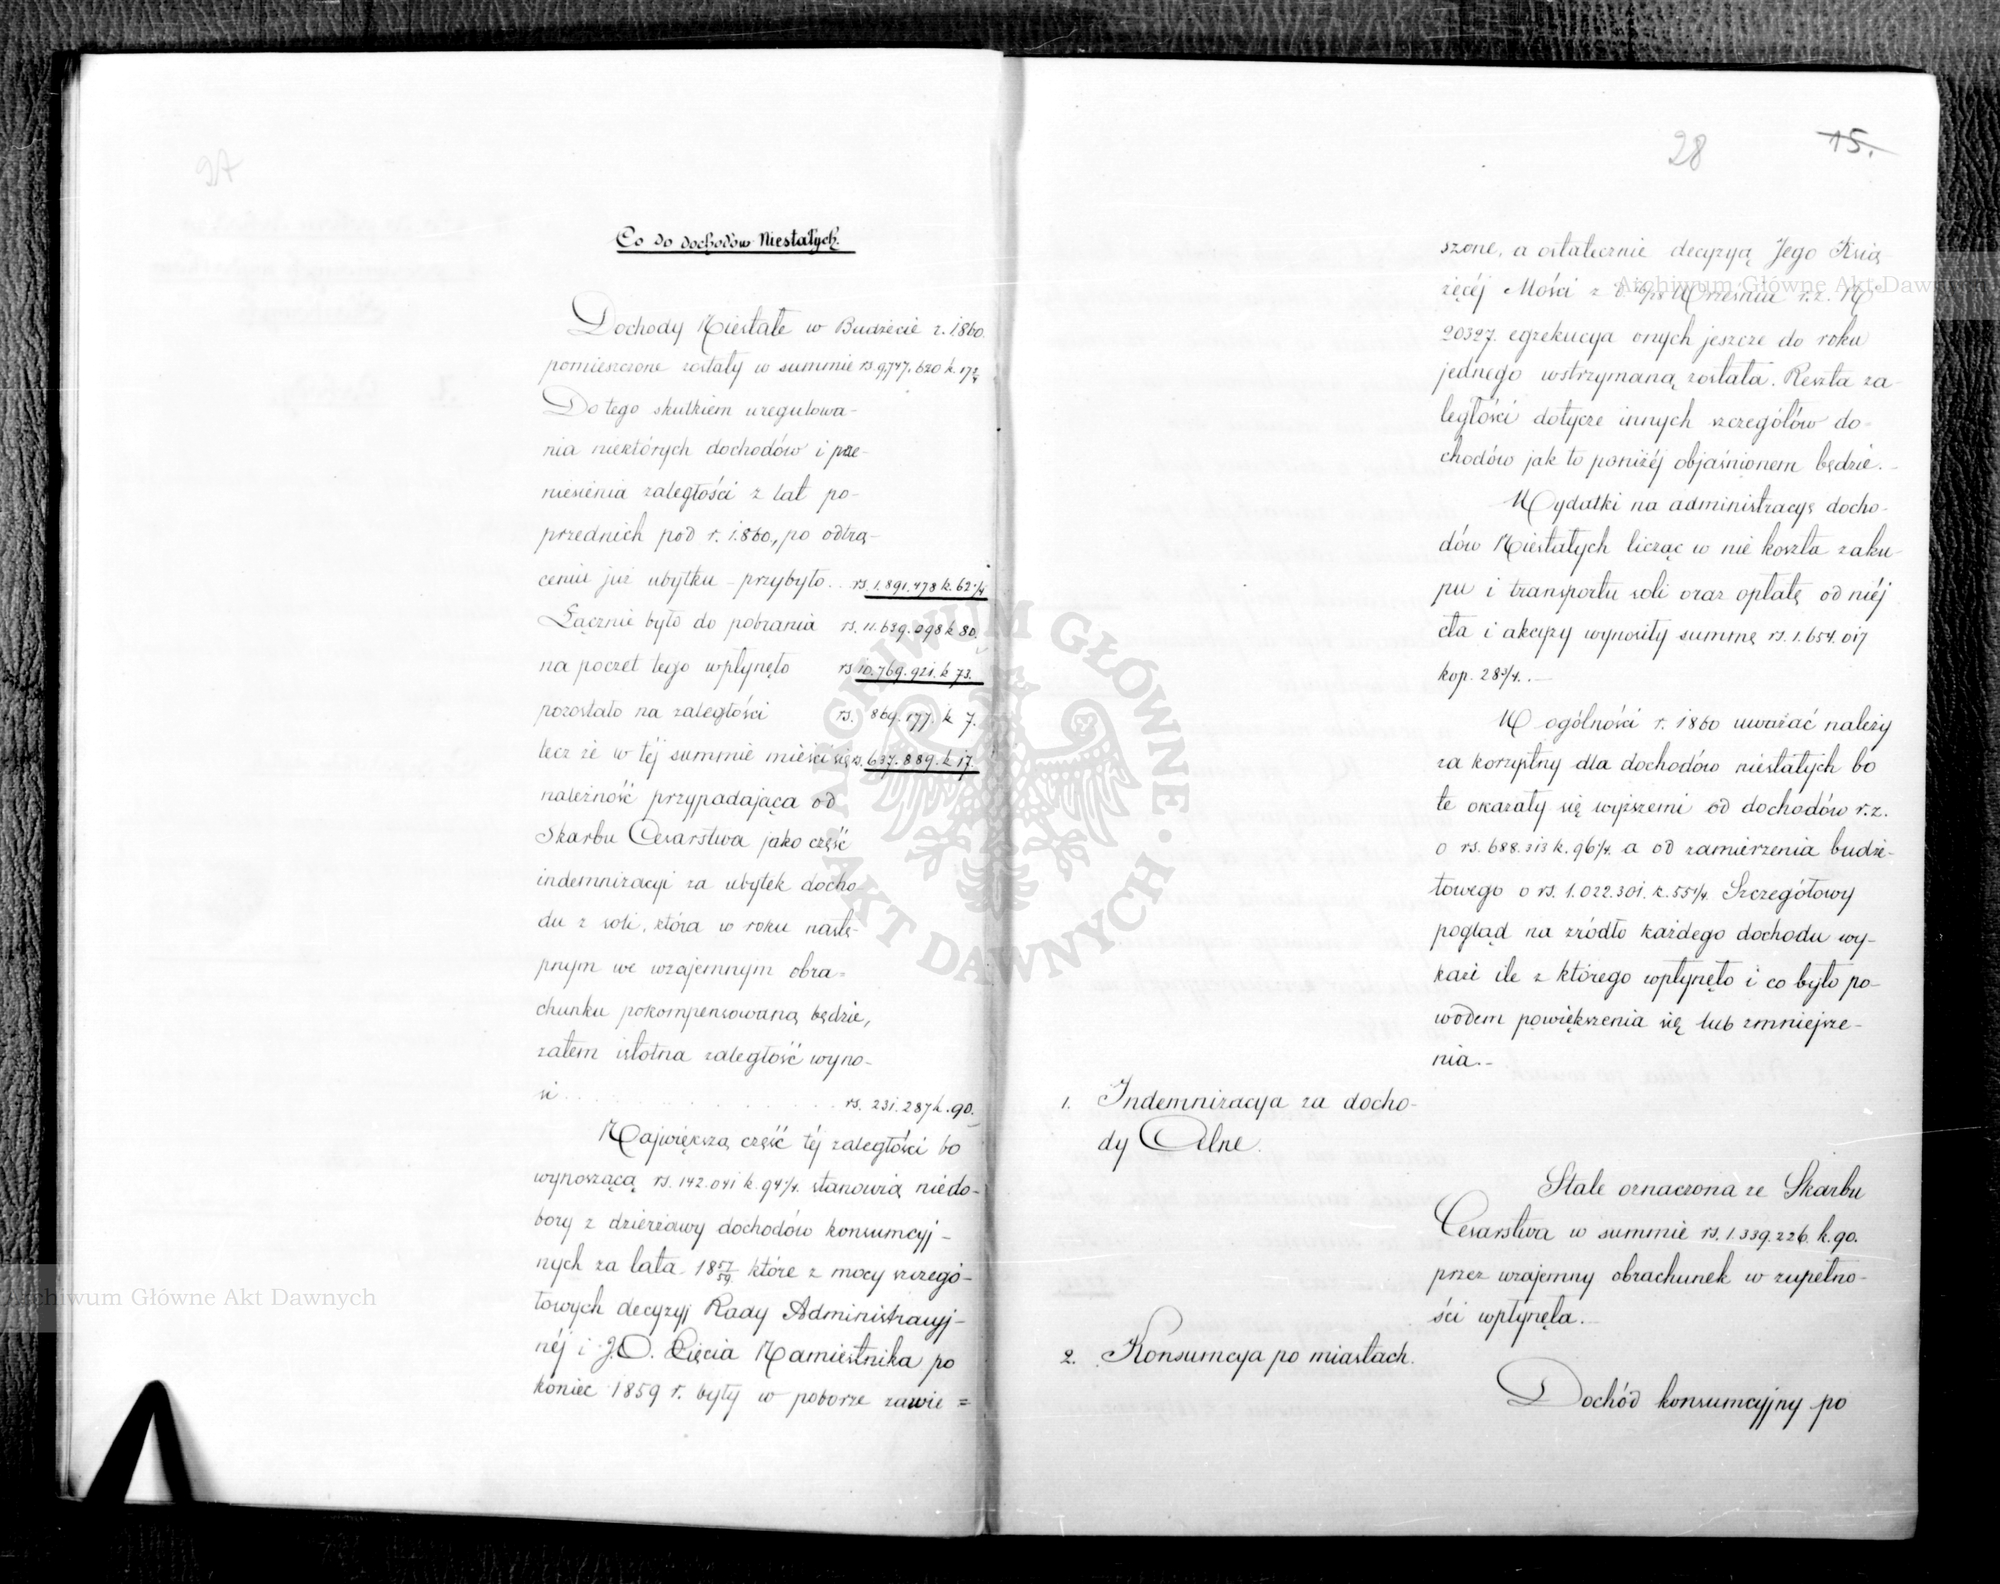 Co do dochodów Niestałych.
Dochody Niestałe w Budżecie r. 1860.
pomieszczone zostały w summie rs. 9,747,620 k. 17 2/4
Do tego skutkiem uregulowa-
nia niektórych dochodów i prze-
niesienia zaległości z lat po-
przednich pod r. 1860, po odtrą-
ceniu już ubytku - przybyło.. rs. 1.891.478 k. 62 2/4
Łącznie było do pobrania rs. 11.639.098 k 80.
na poczet tego wpłynęło rs 10.769.921. k 73.
pozostało na zaległości rs. 869.177. k 7.
lecz że w téj summie mieści się rs. 637.889. k 17.
należność przypadająca od
Skarbu Cesarstwa jako część
indemnizacyi za ubytek docho-
du z soli, która w roku nastę-
pnym we wzajemnym obra-
chunku pokompensowaną będzie,
zatem istotna zaległość wyno-
si . . . . . . . . rs. 231.287 k. 90.
Największą część téj zaległości bo
wynoszącą rs. 142.041 k. 94 1/4. stanowią niedo-
bory z dzierżawy dochodów konsumcyj-
nych za lata 18 57/59. które z mocy szczegó-
łowych decyzyj Rady Administracyj-
néj i J.O. Xięcia Namiestnika po
koniec 1859 r. były w poborze zawie=
28 15.
szone, a ostatecznie decyzyą Jego Ksią-
żęcéj Mości z d. 6/18 Września r. z. No
20327. egzekucya onych jeszcze do roku
jednego wstrzymaną została. Reszta za-
ległości dotycze innych szczegółów do-
chodów jak to poniżéj objaśnionem będzie.-
Wydatki na administracyę docho-
dów Niestałych licząc w nie koszta zaku-
pu i transportu soli oraz opłatę od niéj
cła i akcyzy wynosiły summę rs. 1.654.017
kop. 28 3/4. . -
W ogólności r. 1860 uważać należy
za korzystny dla dochodów niestałych bo
te okazały się wyższemi od dochodów r. z.
o rs. 688.313 k. 96 1/4. a od zamierzenia budże-
towego o rs. 1.022.301. k. 55 1/4. Szczegółowy
pogląd na zródło każdego dochodu wy-
każe ile z którego wpłynęło i co było po-
wodem powiększenia się lub zmniejsze-
nia.-
1. Indemnizacya za docho-
dy Celne.
Stale oznaczona ze Skarbu
Cesarstwa w summie rs. 1.339.226. k. 90.
przez wzajemny obrachunek w zupełno-
ści wpłynęła.-
2. Konsumcya po miastach.
Dochód konsumcyjny po
Archiwum Główne Akt Dawnych
Archiwum Główne Akt Dawnych
ARCHIWUM GŁÓWNE · AKT DAWNYCH ·